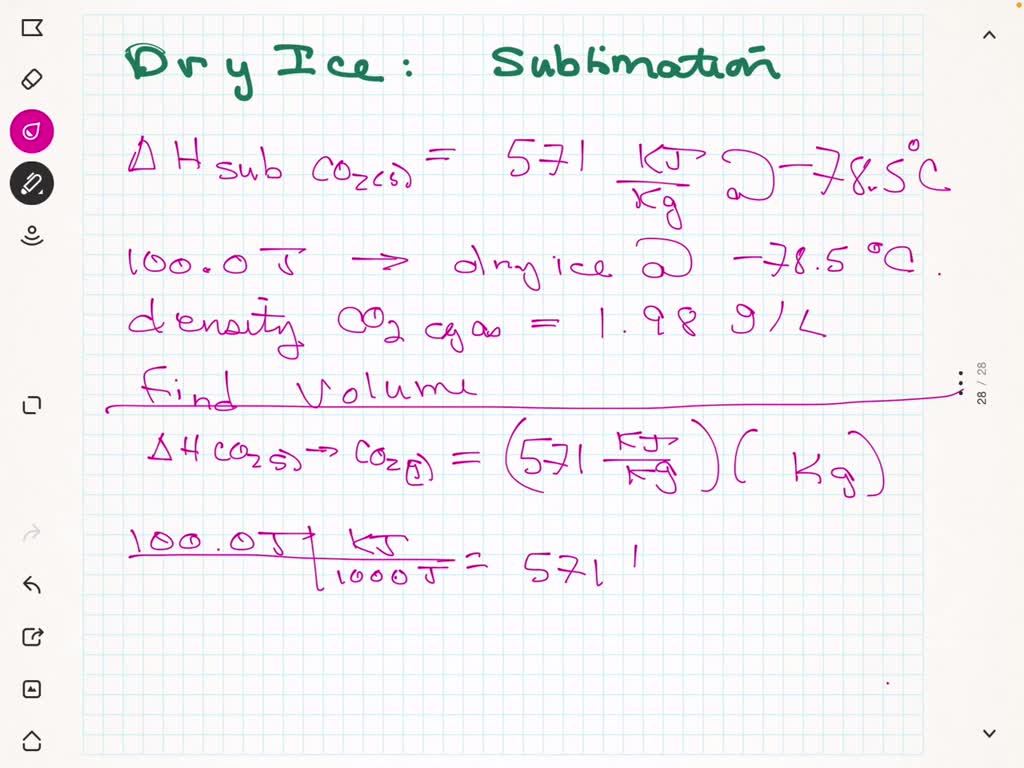 Dry Ice: Sublimation
ΔH sub CO2(s) = 571 KJ/Kg @ -78.5°C
100.0 J → dry ice @ -78.5 °C.
density CO2 gas = 1.98 g/L
Find Volume
ΔH CO2(s) → CO2(g) = (571 KJ/Kg) ( Kg)
100.0 J | KJ/1000 J = 571
28 / 28